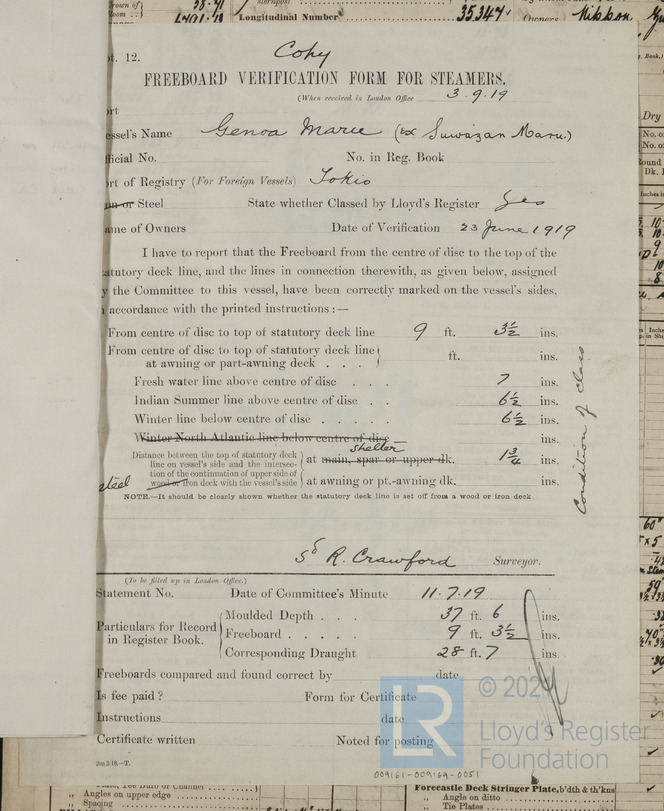 Longitudinal Number 35,347.
Copy
t. 12.
FREEBOARD VERIFICATION FORM FOR STEAMERS.
(When received in London Office 3.9.19
ort
essel's Name Genoa Marie (ex Suwazan Maru.)
fficial No. No. in Reg. Book
rt of Registry (For Foreign Vessels) Tokio
on or Steel State whether Classed by Lloyd's Register Yes
ame of Owners Date of Verification 23 June 1919
I have to report that the Freeboard from the centre of disc to the top of the
atutory deck line, and the lines in connection therewith, as given below, assigned
y the Committee to this vessel, have been correctly marked on the vessel's sides,
accordance with the printed instructions:—
From centre of disc to top of statutory deck line 9 ft. 3½ ins.
From centre of disc to top of statutory deck line
at awning or part-awning deck . . . ft. ins.
Fresh water line above centre of disc . . . 7 ins.
Indian Summer line above centre of disc . . 6½ ins.
Winter line below centre of disc . . . . . 6½ ins.
Winter North Atlantic line below centre of disc ins.
shelter
Distance between the top of statutory deck
line on vessel's side and the intersec-
tion of the continuation of upper side of
wood or iron deck with the vessel's side
steel
at main, spar or upper dk. 1¾ ins.
at awning or pt.-awning dk. ins.
Condition of Class
NOTE.—It should be clearly shown whether the statutory deck line is set off from a wood or iron deck
Sd R. Crawford Surveyor.
(To be filled up in London Office.)
Statement No. Date of Committee's Minute 11.7.19
Particulars for Record
in Register Book.
Moulded Depth . . . 37 ft. 6 ins.
Freeboard . . . . . 9 ft. 3½ ins.
Corresponding Draught 28 ft. 7 ins.
Freeboards compared and found correct by date
Is fee paid? Form for Certificate
Instructions date
Certificate written Noted for posting
2m.3.18.—T.
LR
© 2024
Lloyd's Register
Foundation
009161-009169-0051
Angles on upper edge
Spacing
Forecastle Deck Stringer Plate, b'dth & th'kns
Angle on ditto
Tie Plates